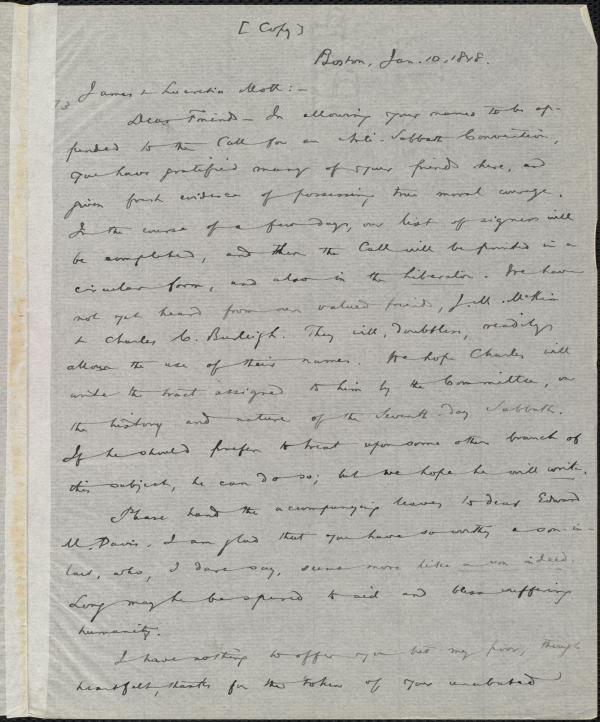 [Copy]
Boston, Jan. 10, 1848.
James & Lucretia Mott:—
Dear Friends — In allowing your names to be ap-
pended to the Call for an Anti-Sabbath Convention,
you have gratified many of your friends here, and
given fresh evidence of possessing true moral courage.
In the course of a few days, our list of signers will
be completed, and then the Call will be printed in a
circular form, and also in the Liberator. We have
not yet heard from our valued friends, J. M. McKim
& Charles C. Burleigh. They will, doubtless, readily
allow the use of their names. We hope Charles will
write the tract assigned to him by the Committee, on
the history and nature of the Seventh-day Sabbath.
If he should prefer to treat upon some other branch of
this subject, he can do so; but we hope he will write.
Please hand the accompanying leaves to dear Edward
M. Davis. I am glad that you have so worthy a son-in-
law, who, I dare say, seems more like a son indeed.
Long may he be spared to aid and bless suffering
humanity.
I have nothing to offer you but my poor, though
heartfelt, thanks for the token of your unabated